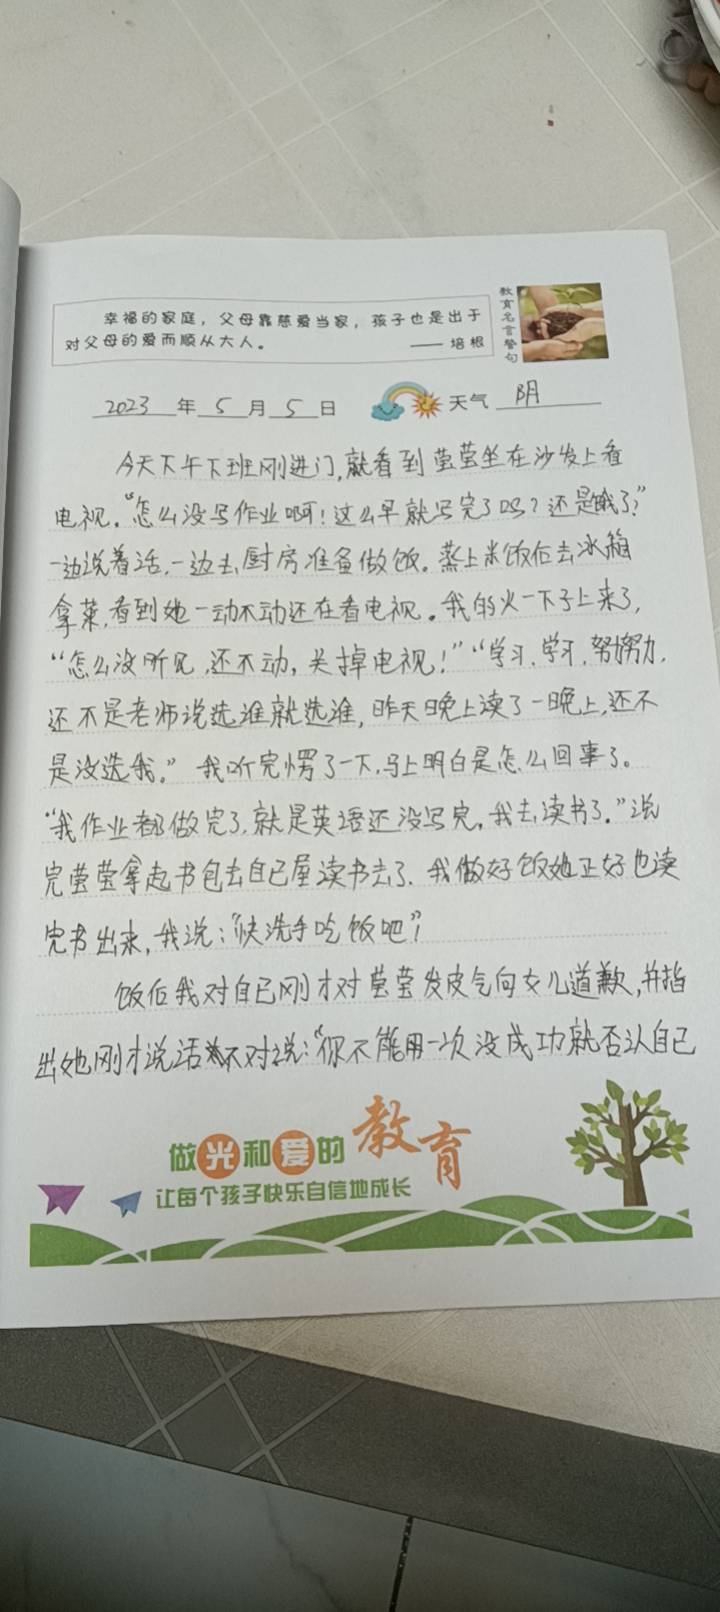 教育名言警句
幸福的家庭，父母靠慈爱当家，孩子也是出于
对父母的爱而顺从大人。 —— 培根
2023年5月5日 天气 阴
今天下午下班刚进门,就看到萤萤坐在沙发上看
电视。“怎么没写作业啊！这么早就写完了吗？还是饿了？”
一边说着话,一边去厨房准备做饭。蒸上米饭后去冰箱
拿菜,看到她一动不动还在看电视。我的火一下子上来了,
“怎么没听见,还不动,关掉电视！”“学习,学习,努努力,
还不是老师说选谁就选谁,昨天晚上读了一晚上,还不
是没选我。”我听完愣了一下,马上明白是怎么回事了。
“我作业都做完了,就是英语还没写完。我去读书了。”说
完萤萤拿起书包去自己屋读书去了.我做好饭她正好也读
完书出来,我说：“快洗手吃饭吧”！
饭后我对自己刚才对萤萤发皮气向女儿道歉,并指
出她刚才说话不对说：“你不能用一次没成功就否认自己
做光和爱的教育
让每个孩子快乐自信地成长